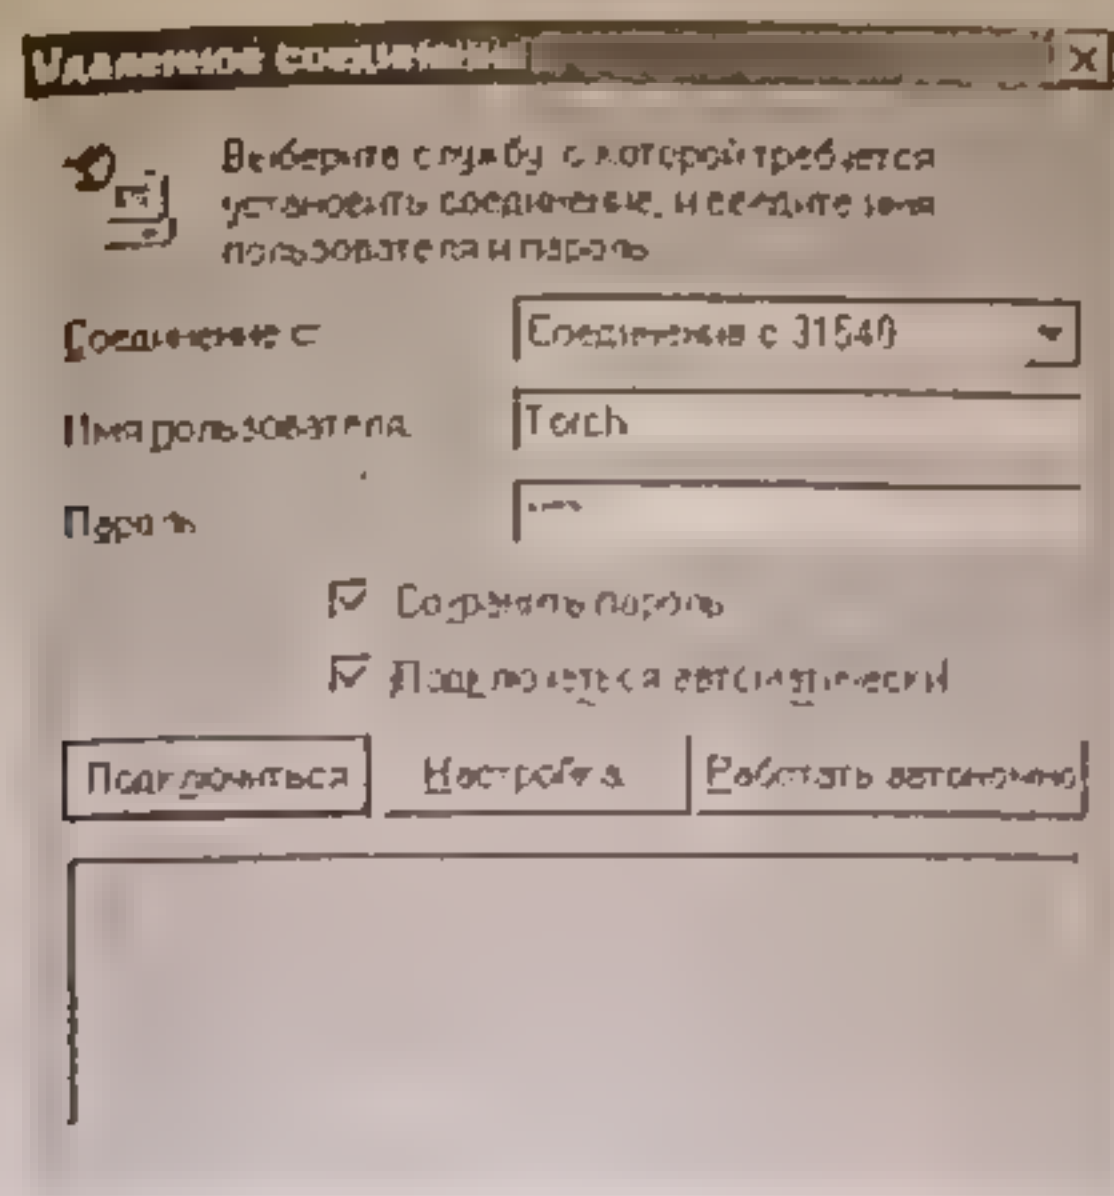 Удаленное соединение
Выберите службу, с которой требуется
установить соединение, и введите имя
пользователя и пароль.
Соединение с
Соединение с 31540
Имя пользователя
Torch
Пароль
***
Сохранить пароль
Подключаться автоматически
Подключиться
Настройка
Работать автономно